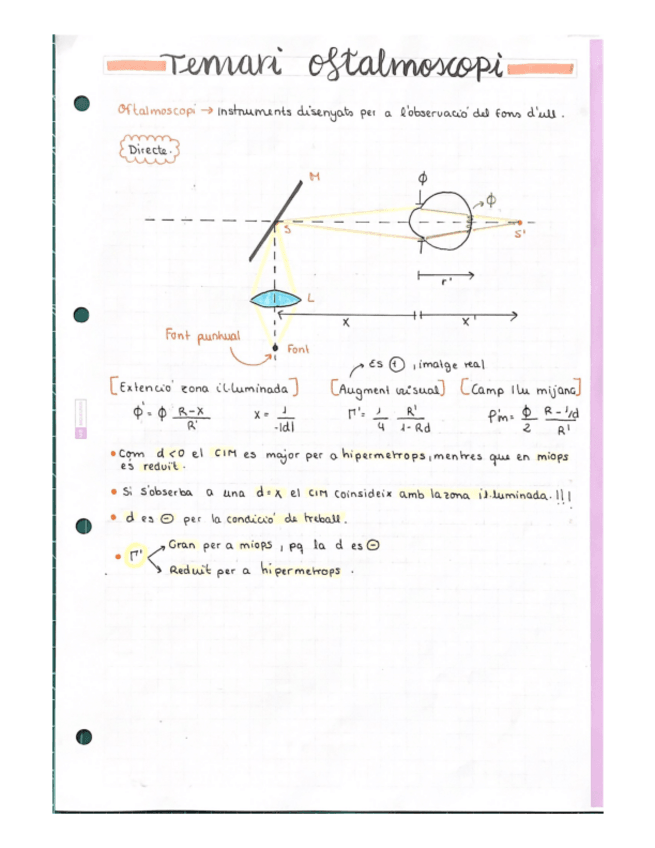 Temari oftalmoscopi
Oftalmoscopi → instruments disenyats per a l'observació del fons d'ull.
Directe.
M
ϕ
ϕ
S
S'
r'
L
x
x'
Font puntual
Font
És ⊕, imatge real
[Extenció zona il·luminada] [Augment visual] [Camp llu mijana]
ϕ' = ϕ (R-x)/R' x = 1/-|d| Γ' = 1/4 R'/(1-Rd) ρ'm = ϕ/2 (R-1/d)/R'
• Com d<0 el CIM es major per a hipermetrops, mentres que en miops
és reduït.
• Si s'observa a una d=x el CIM coinsideix amb la zona il·luminada. !!!
• d es ⊖ per la condició de treball.
• Γ'
Gran per a miops, pq la d es ⊖
Reduït per a hipermetrops.